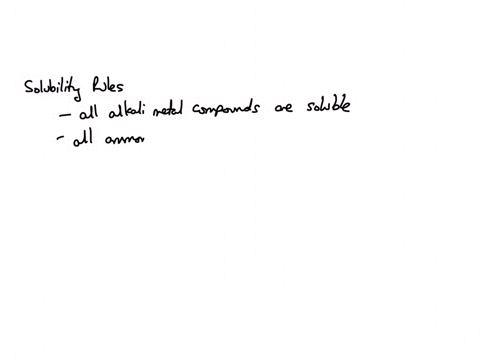 Solubility Rules
- all alkali metal compounds are soluble
- all ammo